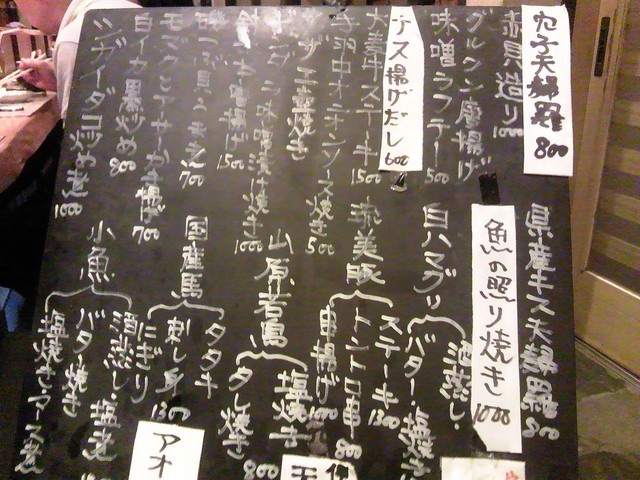 穴子天婦羅 800
赤貝造り 1000
グルクン唐揚げ
味噌ラフテー 500
ナス揚げだし 600
大麦牛ステーキ 1500
手羽中オニオンソース焼き 500
サザエ壺焼き
味噌漬け焼き 1000
唐揚げ 1500
磯つぶ貝うま煮 700
モズクとアーサーかき揚げ 700
白イカ黒炒め 900
シガイダコ炒め煮 1000
県産キス天婦羅 800
魚の照り焼き 1000
白ハマグリ
酒蒸し・
バター・塩焼き
恭美豚
ステーキ 1300
トントロ串 800
串揚げ 1000
山原若鳥
塩焼き
タレ焼き 800
国産馬
タタキ
刺し身 1300
にぎり
小魚
酒蒸し・塩煮
バタ焼き
塩焼きアース煮
アオ